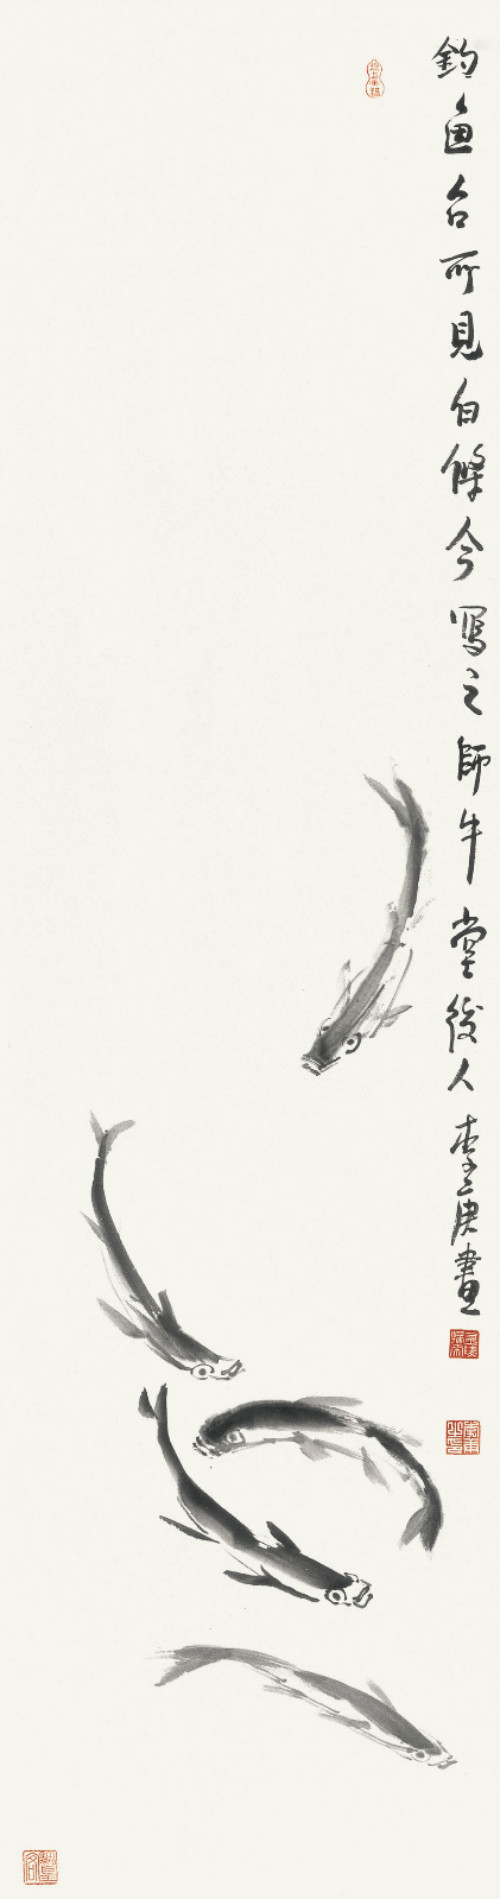 釣魚台所見白條今寫之師牛堂後人李庚畫